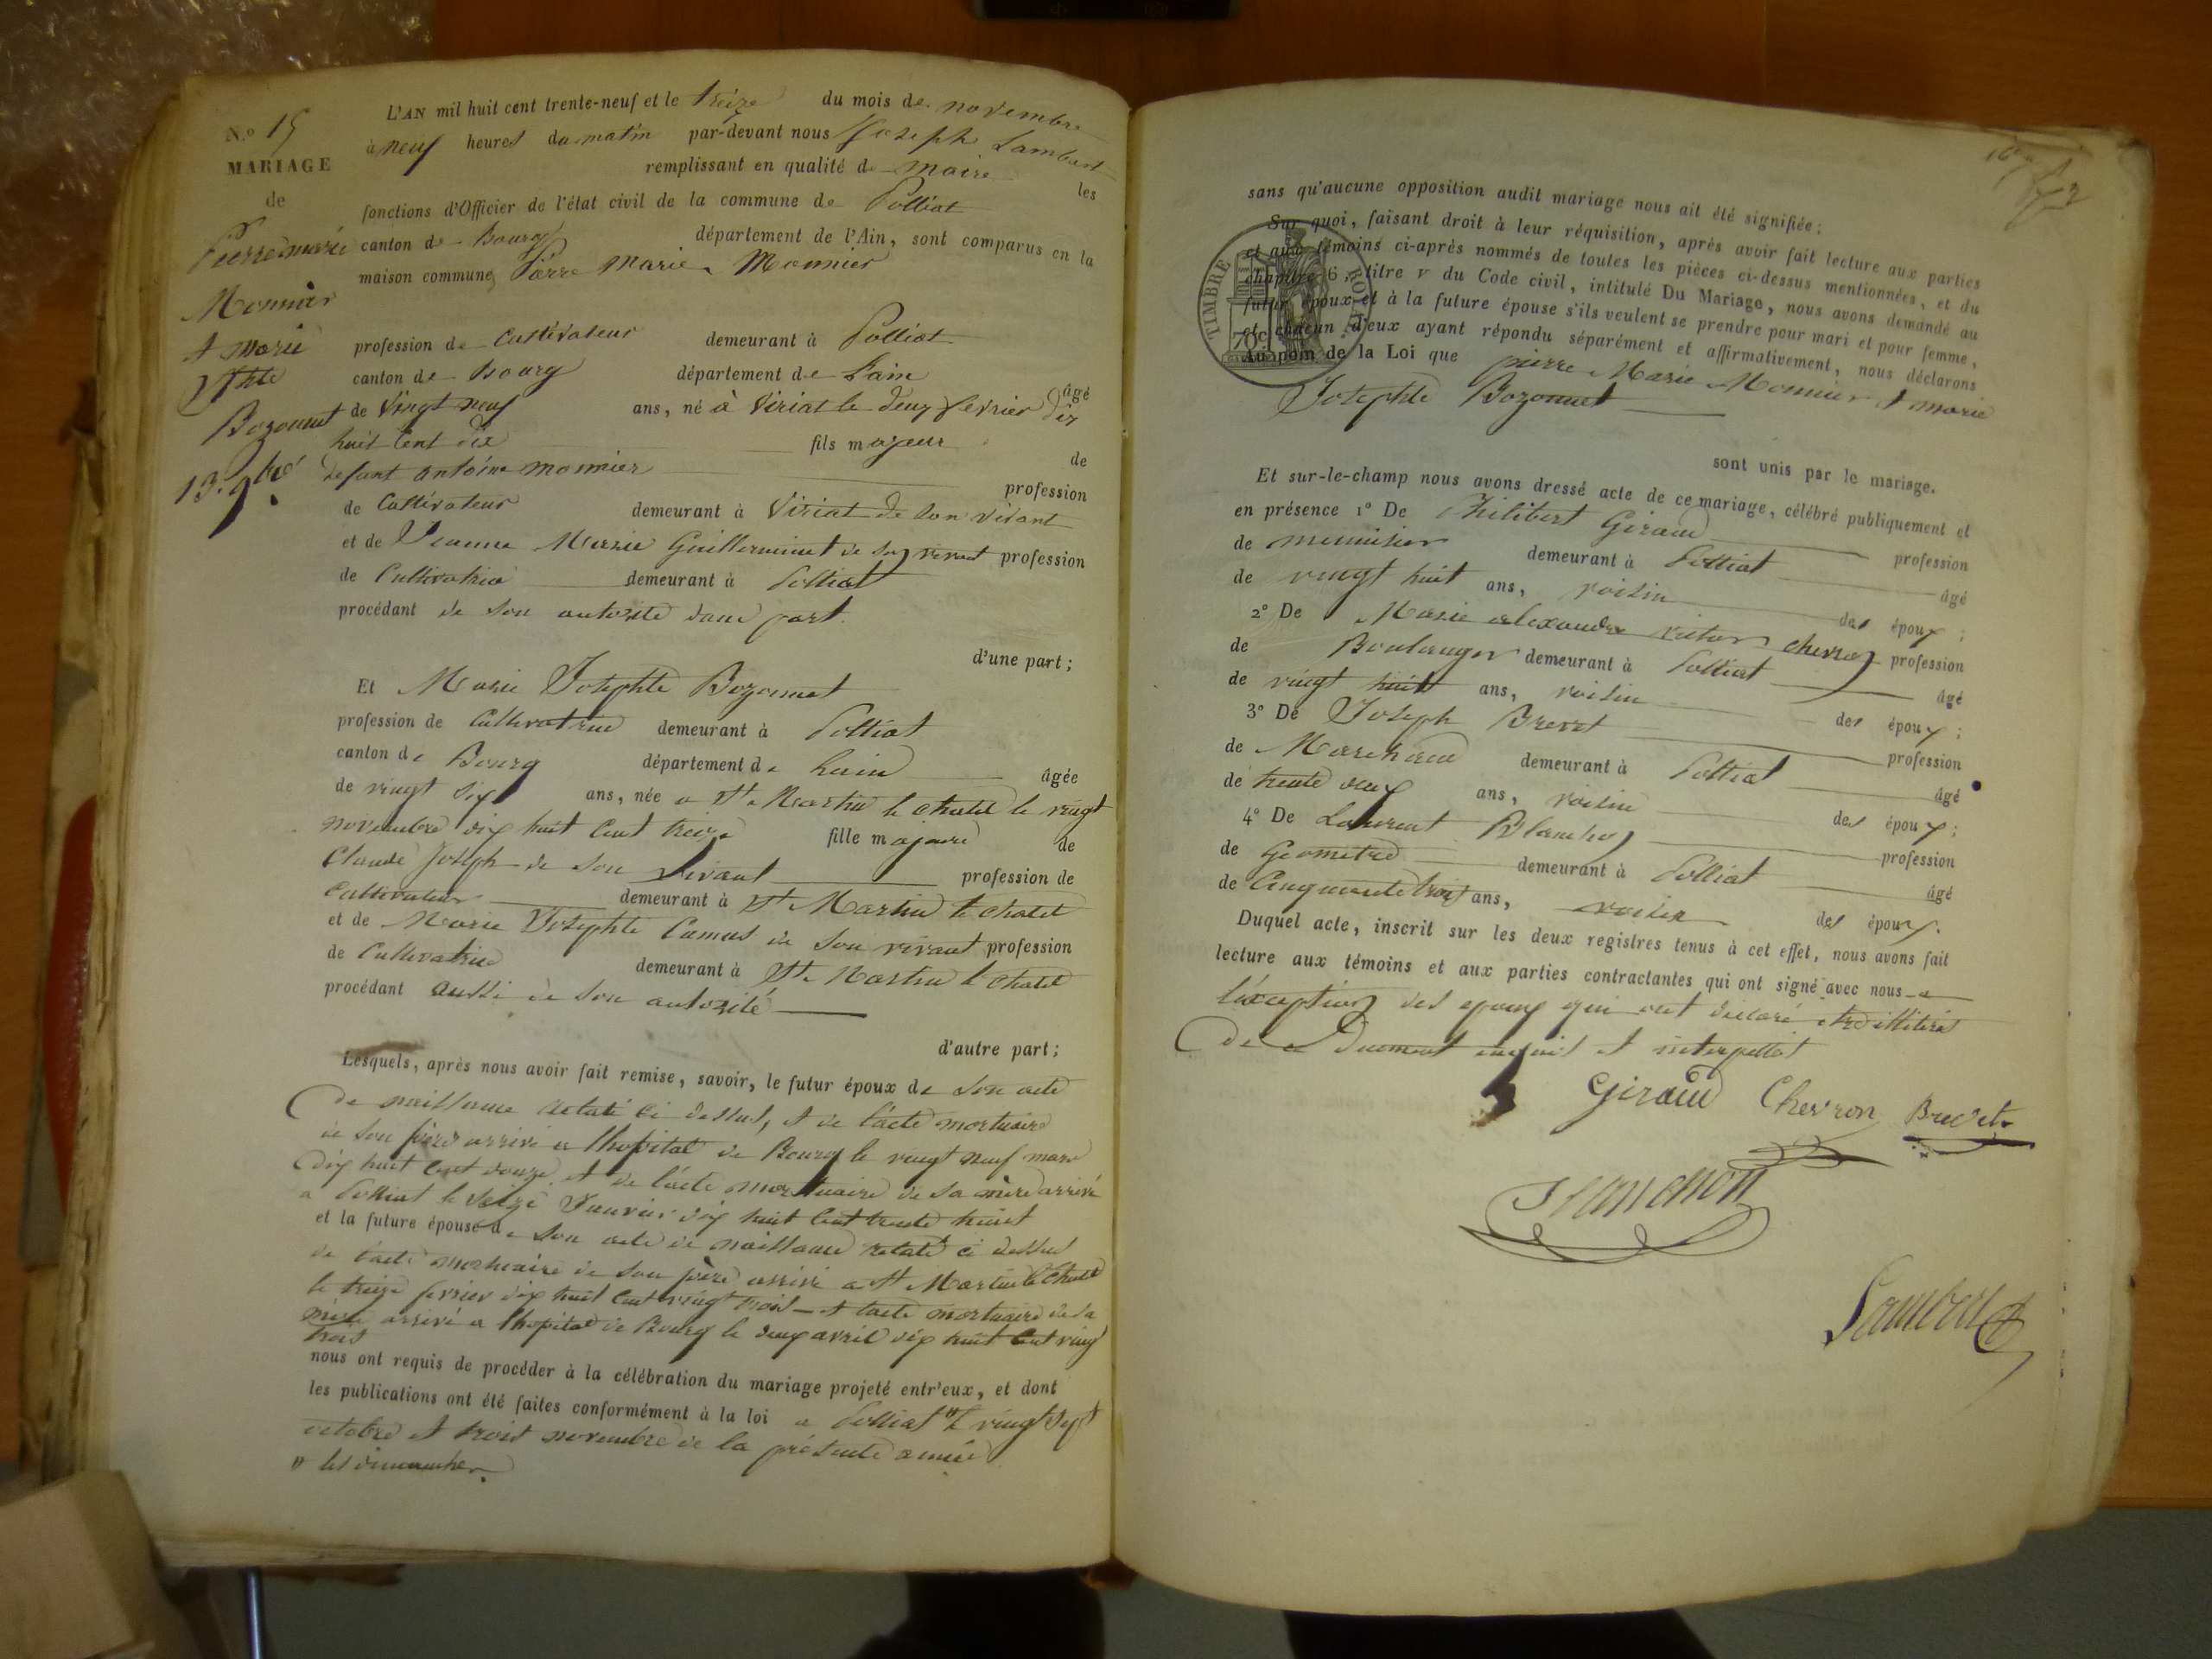 N.o 15
MARIAGE
de
Pierre marie
Monnier
et marie
Jsphte
Bozonnet
13. 9bre
L'AN mil huit cent trente-neuf et le treize du mois de novembre
à neuf heures du matin par-devant nous Joseph Lambert
remplissant en qualité de maire les
fonctions d'Officier de l'état civil de la commune de Polliat
canton de Bourg département de l'Ain, sont comparus en la
maison commune, Pierre Marie Monnier
profession de Cultivateur demeurant à Polliat
canton de Bourg département de L'ain âgé
de vingt neuf ans, né à Viriat le deux fevrier dix
huit cent dix fils majeur de
defunt antoine monnier profession
de Cultivateur demeurant à Viriat de son vivant
et de Jeanne Marie Guillerminet de son vivant profession
de Cultivatrice demeurant à Polliat
procédant de son autorité dune part.
d'une part;
Et Marie Josephte Bozonnet
profession de Cultivatrice demeurant à Polliat
canton de Bourg département de Lain âgée
de vingt six ans, née a St Martin le chatel le vingt
novembre dix huit cent treize fille majeure de
Claude Joseph de son vivant profession de
Cultivateur demeurant à St Martin le chatel
et de Marie Josephte Camus de son vivant profession
de Cultivatrice demeurant à St Martin le chatel
procédant aussi de son autorité
d'autre part;
Lesquels, après nous avoir fait remise, savoir, le futur époux de son acte
de naissance relaté ci dessus, et de l'acte mortuaire
de son père arrivé a lhopital de Bourg le vingt neuf mars
dix huit cent douze, et de l'acte mortuaire de sa mère arrivé
a Polliat le seize Janvier dix huit cent trente huit
et la future épouse de son acte de naissance relaté ci dessus
de l'acte mortuaire de son père arrivé a St Martin le chatel
le treize fevrier dix huit cent vingt trois et lacte mortuaire de sa
mère arrivé a lhopital de Bourg le deux avril dix huit cent vingt
trois
nous ont requis de procéder à la célébration du mariage projeté entr'eux, et dont
les publications ont été faites conformément à la loi a Polliat " le vingt sept
octobre et trois novembre de la présente année
" les dimanches
sans qu'aucune opposition audit mariage nous ait été signifiée;
Sur quoi, faisant droit à leur réquisition, après avoir fait lecture aux parties
et aux témoins ci-après nommés de toutes les pièces ci-dessus mentionnées, et du
chapitre 6, titre v du Code civil, intitulé Du Mariage, nous avons demandé au
futur époux et à la future épouse s'ils veulent se prendre pour mari et pour femme,
et chacun d'eux ayant répondu séparément et affirmativement, nous déclarons
Au nom de la Loi que pierre Marie Monnier et marie
Josephte Bozonnet
TIMBRE ROYAL
70c
sont unis par le mariage.
Et sur-le-champ nous avons dressé acte de ce mariage, célébré publiquement et
en présence 1o De Philibert Giraud profession
de menuisier demeurant à Polliat âgé
de vingt huit ans, voisin des époux;
2o De Marie alexandre victor chevron profession
de Boulanger demeurant à Polliat âgé
de vingt huit ans, voisin des époux;
3o De Joseph Brevet profession
de Marchand demeurant à Polliat âgé
de trente deux ans, voisin des époux;
4o De Laurent Blanchon profession
de Géometre demeurant à Polliat âgé
de Cinquante trois ans, voisin des époux.
Duquel acte, inscrit sur les deux registres tenus à cet effet, nous avons fait
lecture aux témoins et aux parties contractantes qui ont signé avec nous a
l'exception des epoux qui ont déclaré etre illitérés
de ce Duement enquis et interpellés
Giraud Chevron Brevet
Blanchon
Lambert